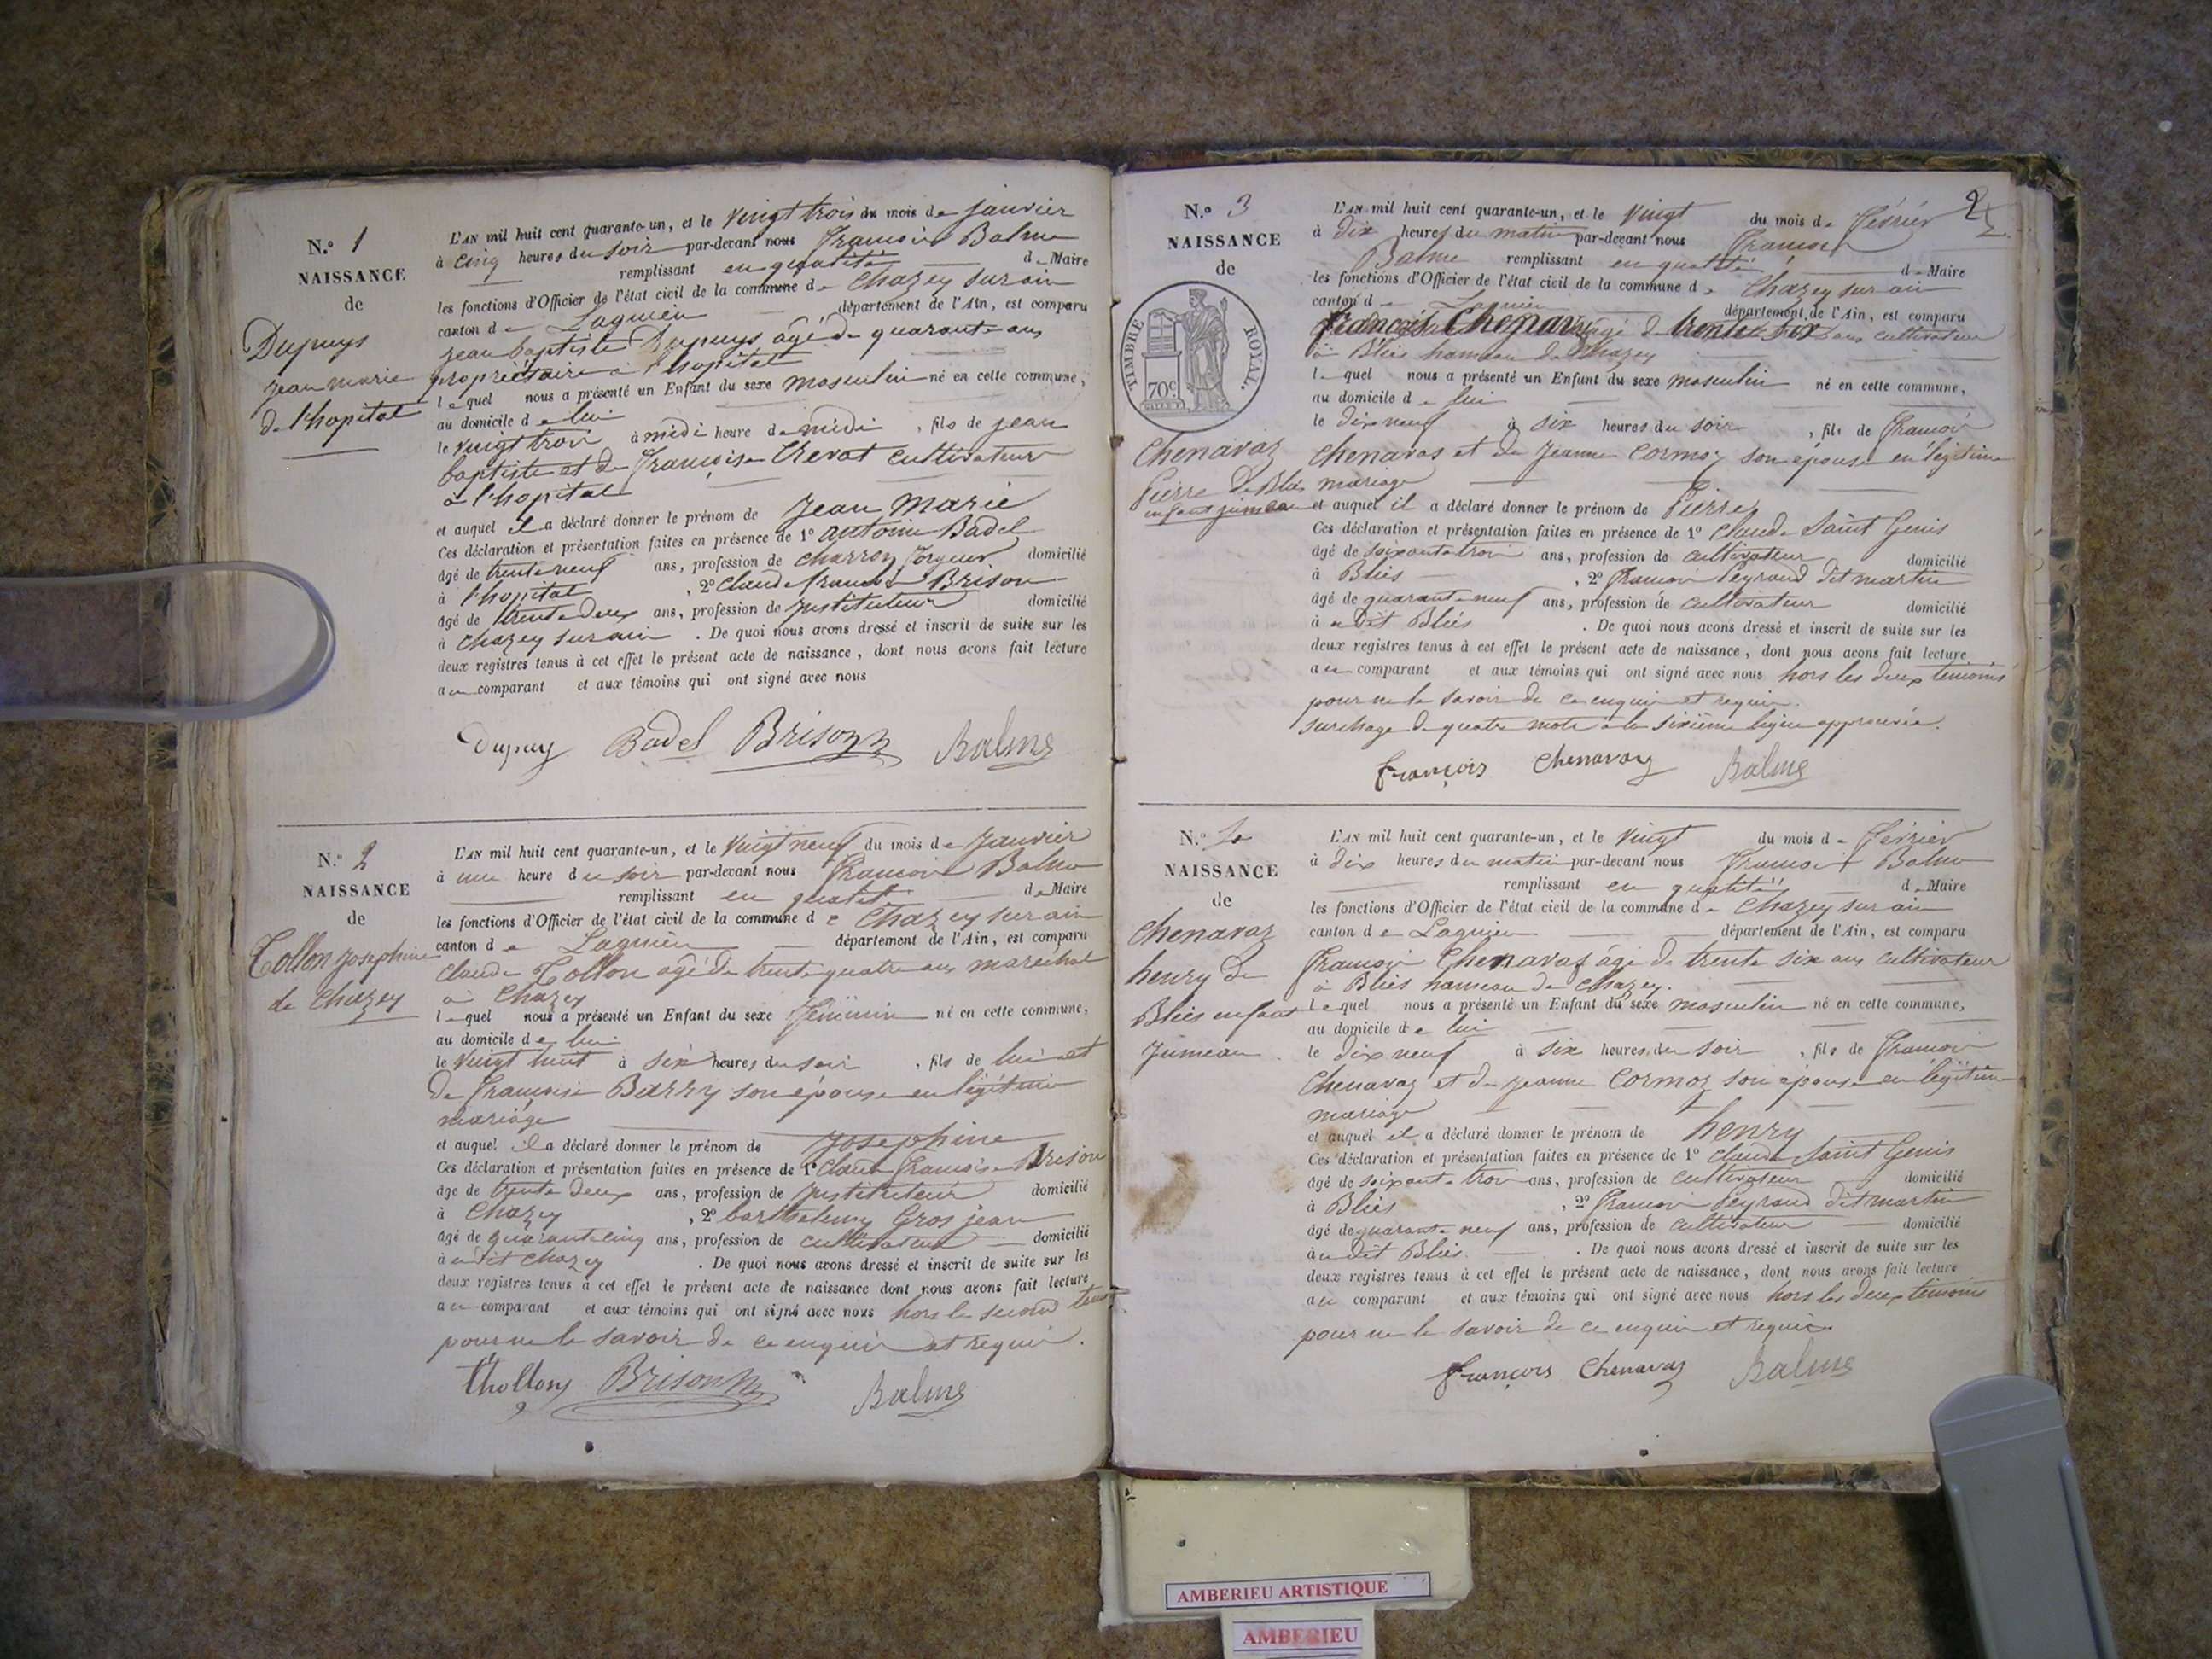 N.o 1
NAISSANCE
de
Dupuys
jean marie
de l'hopital
L'AN mil huit cent quarante-un, et le vingt trois du mois de janvier
à cinq heures du soir par-devant nous françois Balme
remplissant en qualité de Maire
les fonctions d'Officier de l'état civil de la commune de Chazey sur ain
canton de Lagnieu département de l'Ain, est comparu
jean baptiste Dupuys âgé de quarante ans
propriétaire à l'hopital
lequel nous a présenté un Enfant du sexe masculin né en cette commune,
au domicile de lui
le vingt trois à midi heure de midi, fils de jean
baptiste et de françoise Chevat cultivateurs
à l'hopital
et auquel il a déclaré donner le prénom de Jean Marie
Ces déclaration et présentation faites en présence de 1o antoine Badel
âgé de trente neuf ans, profession de charron forgeur domicilié
à l'hopital, 2o Claude françois Brison
âgé de trente deux ans, profession de instituteur domicilié
à Chazey sur ain. De quoi nous avons dressé et inscrit de suite sur les
deux registres tenus à cet effet le présent acte de naissance, dont nous avons fait lecture
au comparant et aux témoins qui ont signé avec nous
Dupuy Badel Brison Balme
N.o 2
NAISSANCE
de
Tollon josephine
de Chazey
L'AN mil huit cent quarante-un, et le vingt neuf du mois de janvier
à une heure du soir par-devant nous françois Balme
remplissant en qualité de Maire
les fonctions d'Officier de l'état civil de la commune de Chazey sur ain
canton de Lagnieu département de l'Ain, est comparu
Claude Tollon âgé de trente quatre ans marechal
à Chazey
lequel nous a présenté un Enfant du sexe féminin né en cette commune,
au domicile de lui
le vingt huit à six heures du soir, fils de lui et
de françoise Barry son épouse en légitime
mariage
et auquel il a déclaré donner le prénom de Josephine
Ces déclaration et présentation faites en présence de 1o Claude françois Brison
âgé de trente deux ans, profession de instituteur domicilié
à Chazey, 2o barthelemy Gros jean
âgé de quarante cinq ans, profession de cultivateur domicilié
à udit Chazey. De quoi nous avons dressé et inscrit de suite sur les
deux registres tenus à cet effet le présent acte de naissance dont nous avons fait lecture
au comparant et aux témoins qui ont signé avec nous hors le second
pour ne le savoir de ce enquis et requis.
thollon Brison Balme
2
N.o 3
NAISSANCE
de
TIMBRE ROYAL.
70c
Chenavaz
Pierre de Bliès
enfant jumeau
L'AN mil huit cent quarante-un, et le vingt du mois de février
à dix heures du matin par-devant nous françois
Balme remplissant en qualité de Maire
les fonctions d'Officier de l'état civil de la commune de Chazey sur ain
canton de Lagnieu département de l'Ain, est comparu
françois Chenavaz âgé de trente six ans cultivateur
à Bliès hameau de Chazey
lequel nous a présenté un Enfant du sexe masculin né en cette commune,
au domicile de lui
le dix neuf à six heures du soir, fils de françois
Chenavas et de jeanne Cormoz son épouse en légitime
mariage
et auquel il a déclaré donner le prénom de Pierre
Ces déclaration et présentation faites en présence de 1o Claude Saint Genis
âgé de soixante trois ans, profession de cultivateur domicilié
à Bliès, 2o françois Peyraud dit martin
âgé de quarante neuf ans, profession de cultivateur domicilié
à udit Bliès. De quoi nous avons dressé et inscrit de suite sur les
deux registres tenus à cet effet le présent acte de naissance, dont nous avons fait lecture
au comparant et aux témoins qui ont signé avec nous hors les deux témoins
pour ne le savoir de ce enquis et requis.
surchage de quatre mots à la sixième ligne approuvée.
françois Chenavaz Balme
N.o 4
NAISSANCE
de
Chenavaz
henry de
Bliès enfant
Jumeau
L'AN mil huit cent quarante-un, et le vingt du mois de février
à dix heures du matin par-devant nous françois Balme
remplissant en qualité de Maire
les fonctions d'Officier de l'état civil de la commune de Chazey sur ain
canton de Lagnieu département de l'Ain, est comparu
françois Chenavas âgé de trente six ans cultivateur
à Bliès hameau de Chazey.
lequel nous a présenté un Enfant du sexe masculin né en cette commune,
au domicile de lui
le dix neuf à six heures du soir, fils de françois
Chenavaz et de jeanne Cormoz son épouse en légitime
mariage
et auquel il a déclaré donner le prénom de henry
Ces déclaration et présentation faites en présence de 1o Claude Saint Genis
âgé de soixante trois ans, profession de cultivateur domicilié
à Bliès, 2o françois Peyraud dit martin
âgé de quarante neuf ans, profession de cultivateur domicilié
à udit Bliès. De quoi nous avons dressé et inscrit de suite sur les
deux registres tenus à cet effet le présent acte de naissance, dont nous avons fait lecture
au comparant et aux témoins qui ont signé avec nous hors les deux témoins
pour ne le savoir de ce enquis et requis.
françois Chenavaz Balme
AMBERIEU ARTISTIQUE
AMBERIEU